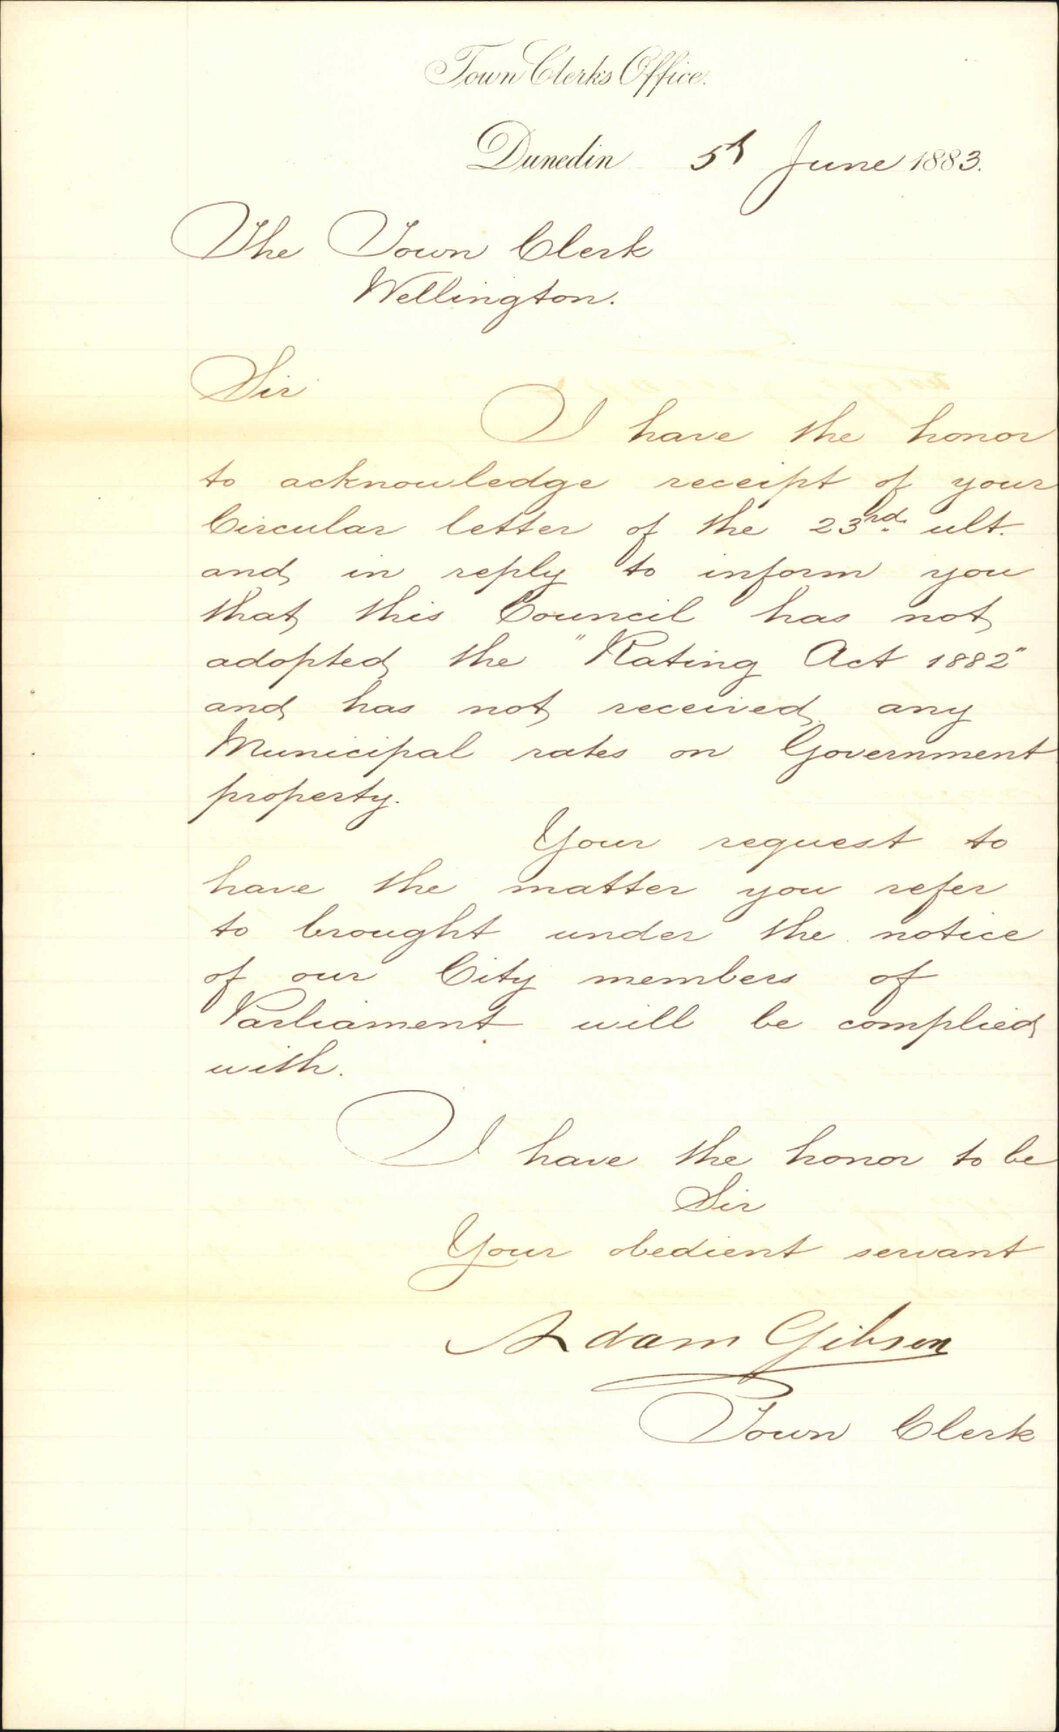 Town Clerks Office.
Dunedin 5th June 1883.
The Town Clerk
Wellington.
Sir
I have the honor
to acknowledge receipt of your
Circular letter of the 23rd. ult.
and in reply to inform you
that this Council has not
adopted the "Rating Act 1882"
and has not received any
Municipal rates on Government
property.
Your request to
have the matter you refer
to brought under the notice
of our City members of
Parliament will be complied
with.
I have the honor to be
Sir
Your obedient servant
Adam Gibson
Town Clerk